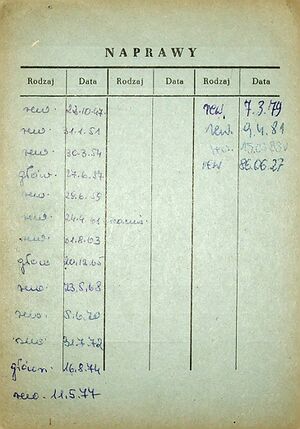 NAPRAWY
Rodzaj Data Rodzaj Data Rodzaj Data
rew. 23.10.47. rew. 7.3.79
rew. 31.1.51 rew. 9.4.81
rew. 30.3.54 rew.
główn. 27.6.57 rew 86.06.27
rew. 29.6.59
rew. 24.4.61
rew. 01.8.63
główn. 20.12.65
rew. 23.5.68
rew. 5.6.70
rew. 31.7.72
główn. 16.8.74
rew. 11.5.77